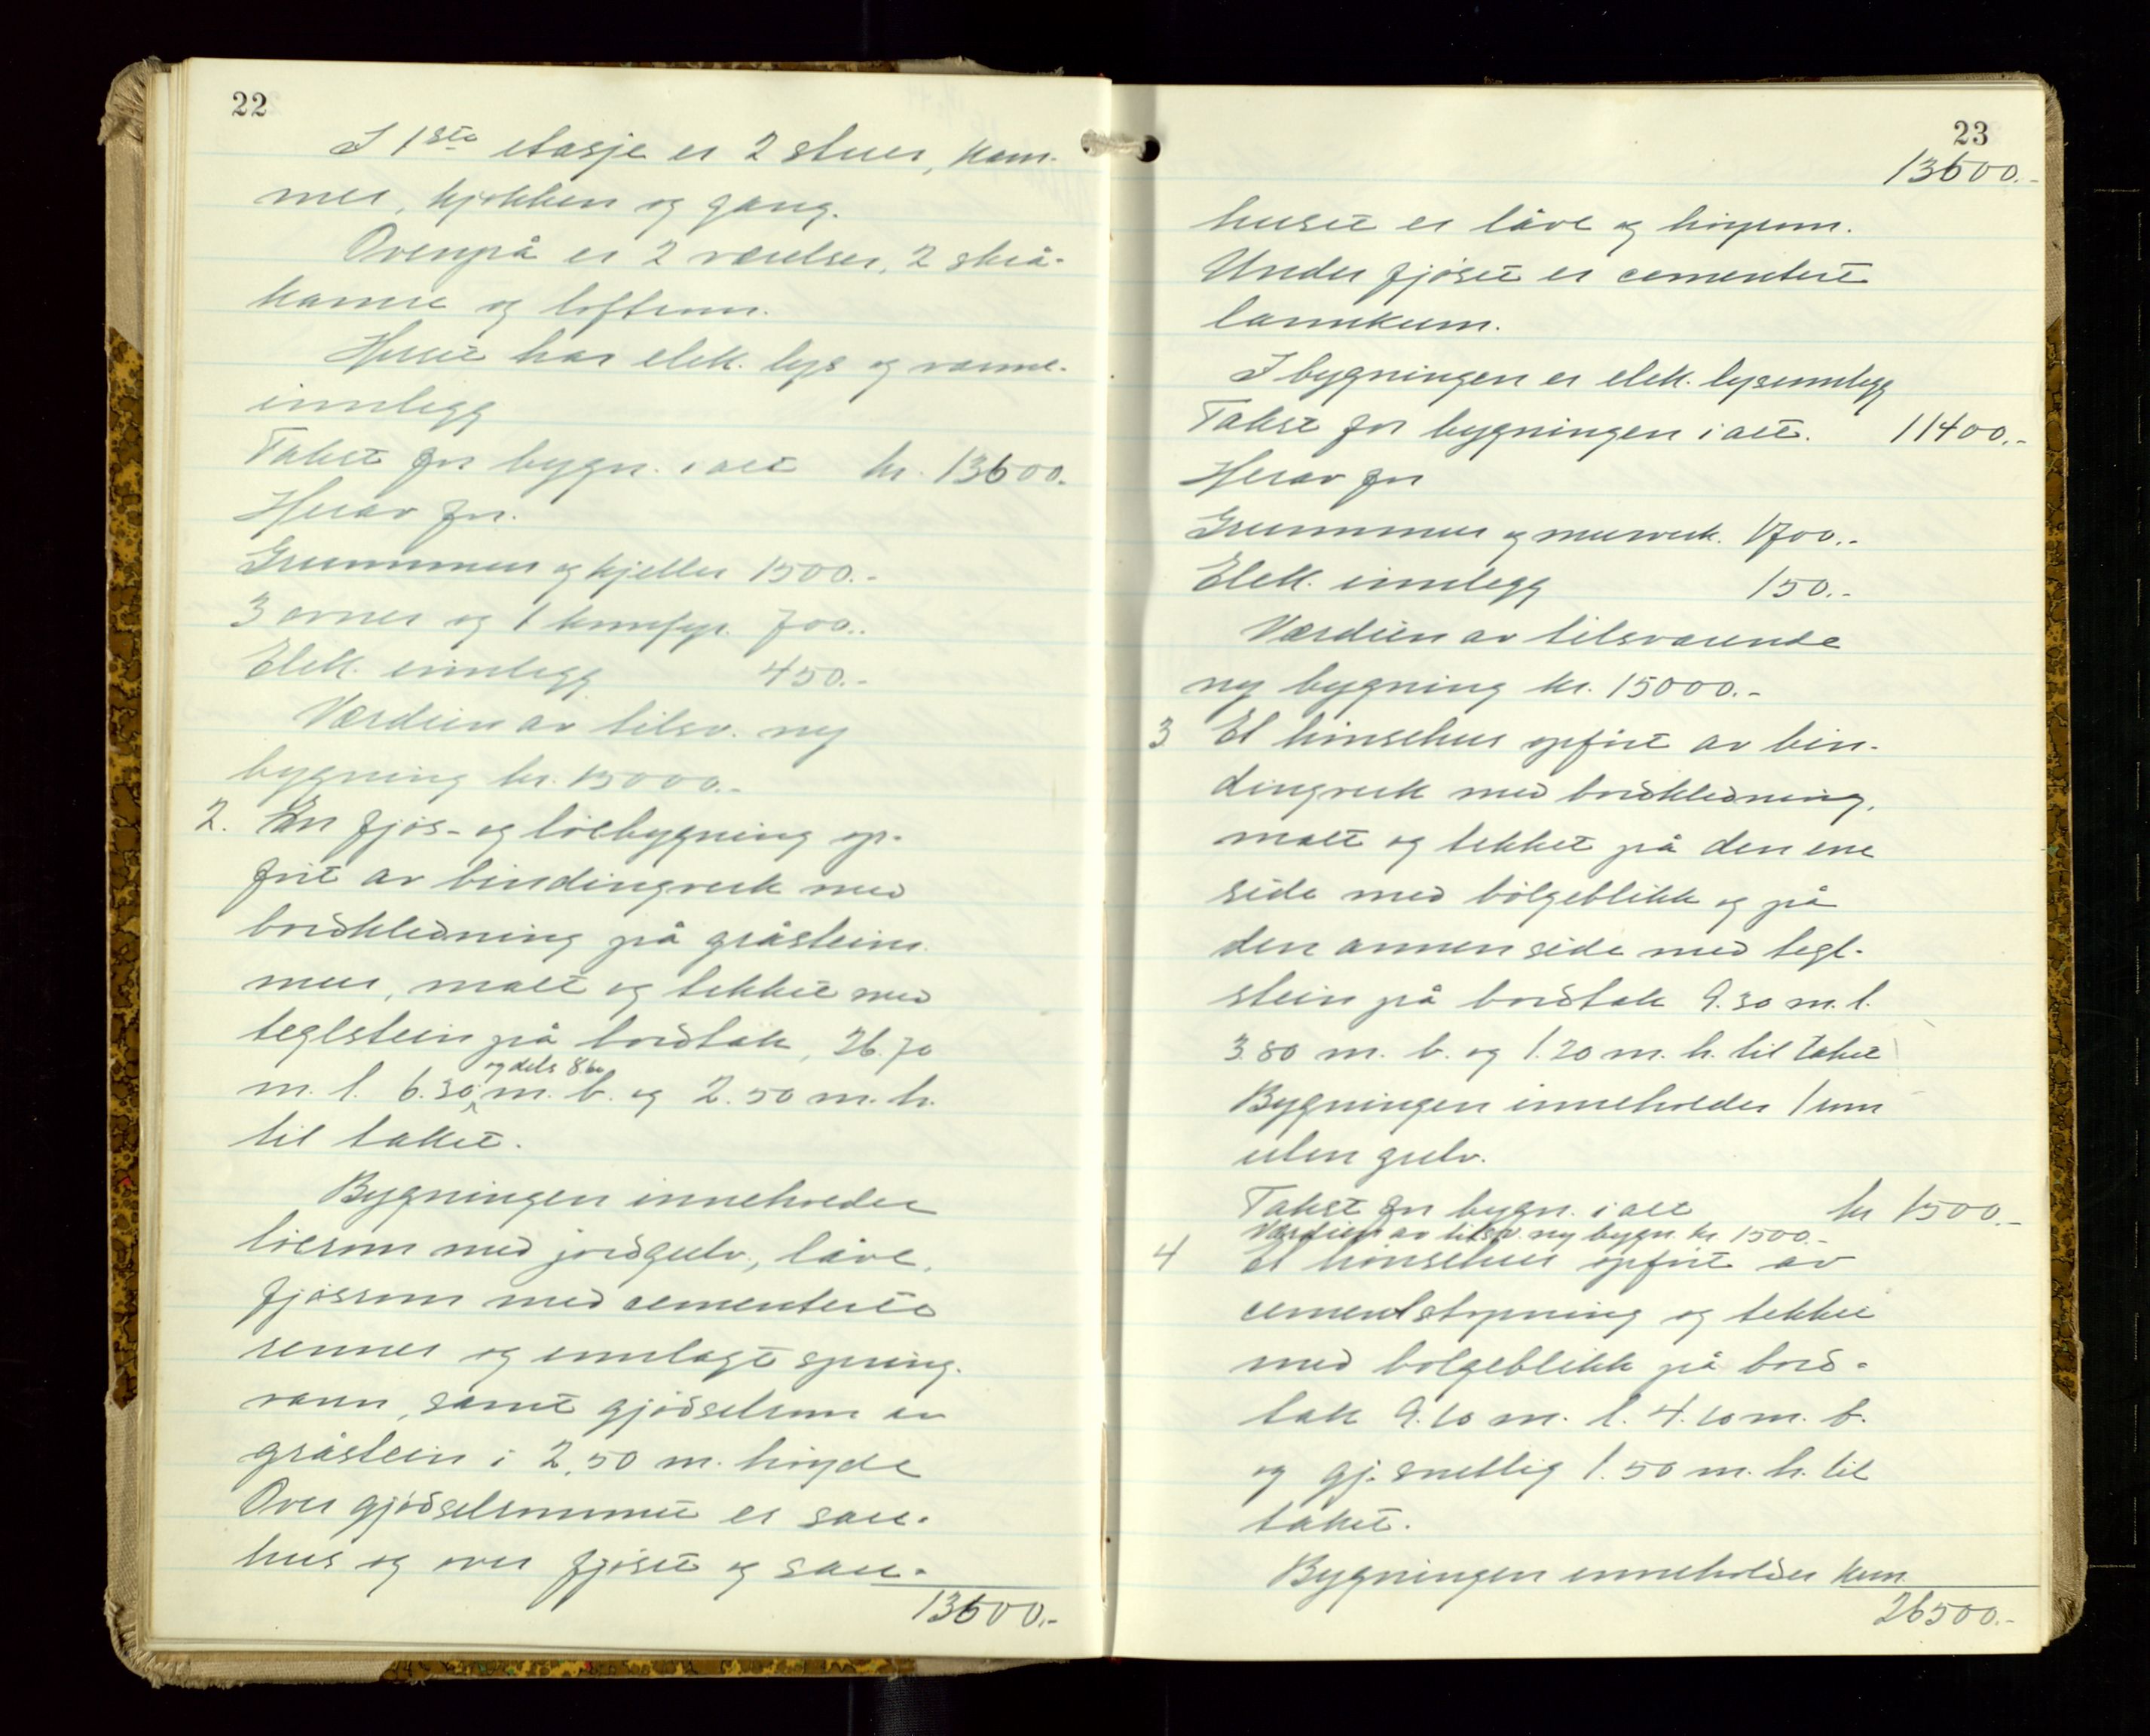 22
I 1ste etasje er 2 stuer, kam-
mer, kjøkken og gang.
Ovenpå er 2 værelser, 2 skrå-
kamre og loftrum.
Huset har elek. lys og varme-
innlegg
Takst for bygn. i alt kr. 13600.
Herav for.
Grunnmur og kjeller 1500.-
3 ovner og 1 komfyr. 700..
Elek. innlegg 450.-
Værdien av tilsv. ny
bygning kr. 15000.-
2. En fjøs- og löebygning op-
ført av bindingverk med
bordkledning på gråsteins
mur, malt og tekket med
teglstein på bordtak, 26.70
og dels 8.60
m. l. 6.30 m. b. og 2.50 m. h.
til taket.
Bygningen inneholder
löerom med jordgulv, låve,
fjøsrom med cementerte
renner og innlagt spring-
vann, samt gjödselrum av
gråstein i 2.50 m. höyde
Over gjödselrummet er saue-
hus og over fjöset og saue-
13600.-
23
13600.-
huset er låve og höyrum.
Under fjöset er cementert
lannkum.
I bygningen er elek. lysinnlegg
Takst for bygningen i alt. 11400.-
Herav for
Grunnmur og murverk. 1700.-
Elek. innlegg 150.-
Værdien av tilsvarende
ny bygning kr. 15000.-
3 Et hönsehus opfört av bin-
dingverk med bordkledning,
malt og tekket på den ene
side med bölgeblikk og på
den annen side med tegl-
stein på bordtak 9.30 m. l.
3.80 m. b. og 1.20 m. h. til taket
Bygningen inneholder 1 rum
uten gulv.
Takst for bygn. i alt kr 1500.-
Værdien av tilsv. ny bygn. kr. 1500.-
4 Et hönsehus opfört av
cementstöpning og tekket
med bölgeblikk på bord-
tak 9.10 m. l. 4.10 m. b.
og gj. snittlig 1.50 m. h. til
taket.
Bygningen inneholder kun
26500.-